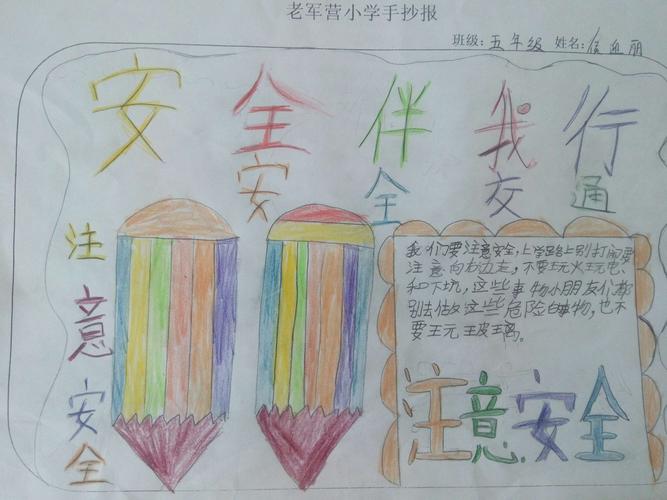 老军营小学手抄报
班级: 五年级 姓名:
安全伴我行
安全交通
注意安全
我们要注意安全,上学路上别打闹要
注意向右边走,不要玩火玩电、
和下坑,这些事物小朋友们都
别去做这些危险的事物,也不
要玩玻璃。
注意安全